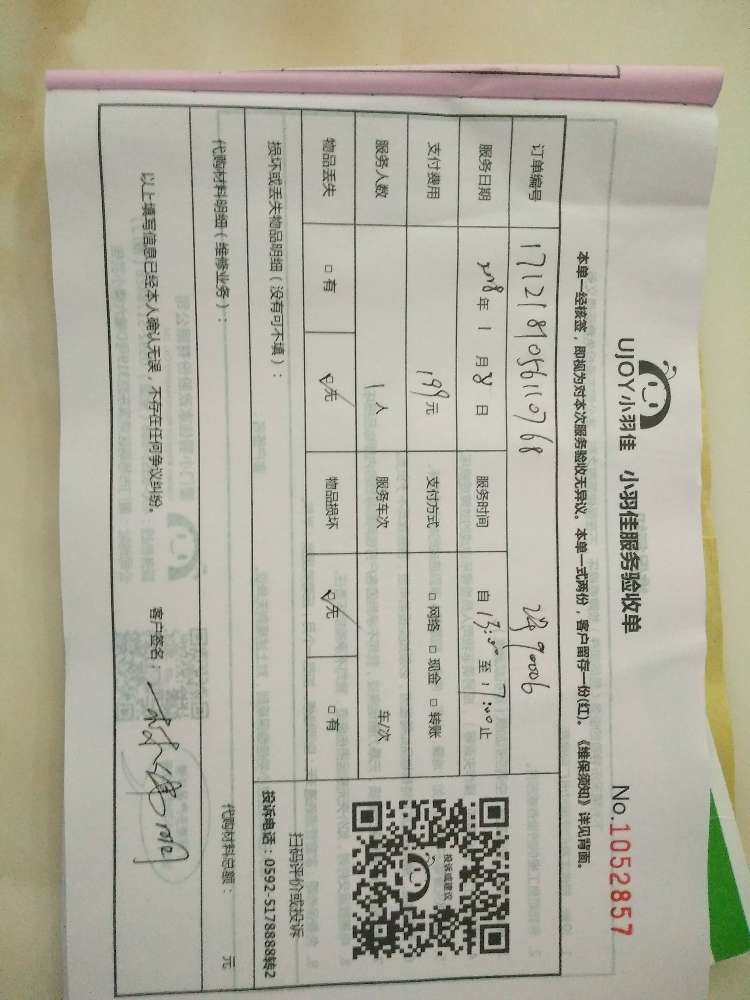 UJOY小羽佳 小羽佳服务验收单 No.1052857
本单一经核签，即视为对本次服务验收无异议。本单一式两份，客户留存一份(红)。《维保须知》详见背面。
订单编号 1712189056110768
服务日期 2018年1月8日 服务时间 自13:00至17:00止
支付费用 199元 支付方式 □网络 □现金 □转账
服务人数 1人 服务车次 车/次
物品丢失 □有 ☑无 物品损坏 ☑无 □有
损坏或丢失物品明细（没有可不填）：
投诉或建议
扫码评价或投诉
投诉电话：0592-5178888转2
代购材料明细（维修业务）： 代购材料总额： 元
以上填写信息已经本人确认无误，不存在任何争议纠纷。 客户签名：